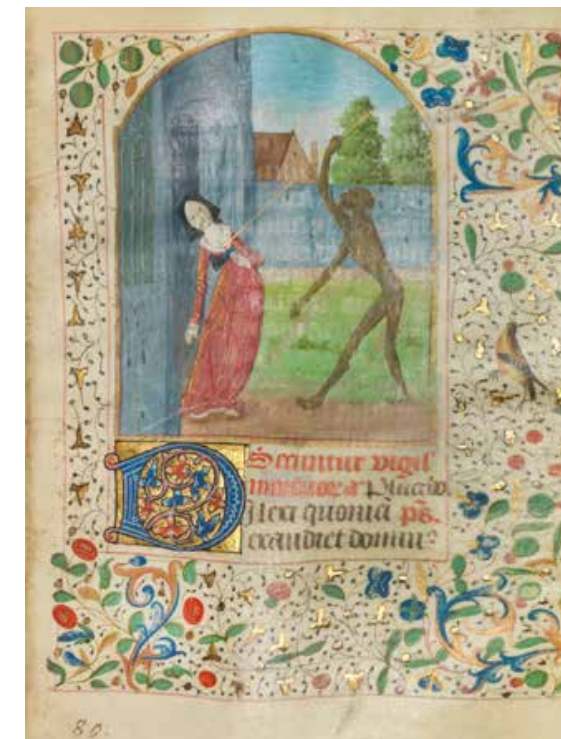 Secuntur vigil'
mortuorū Placebo.
Dilexi quoniā ps.
exaudiet domin9
80.